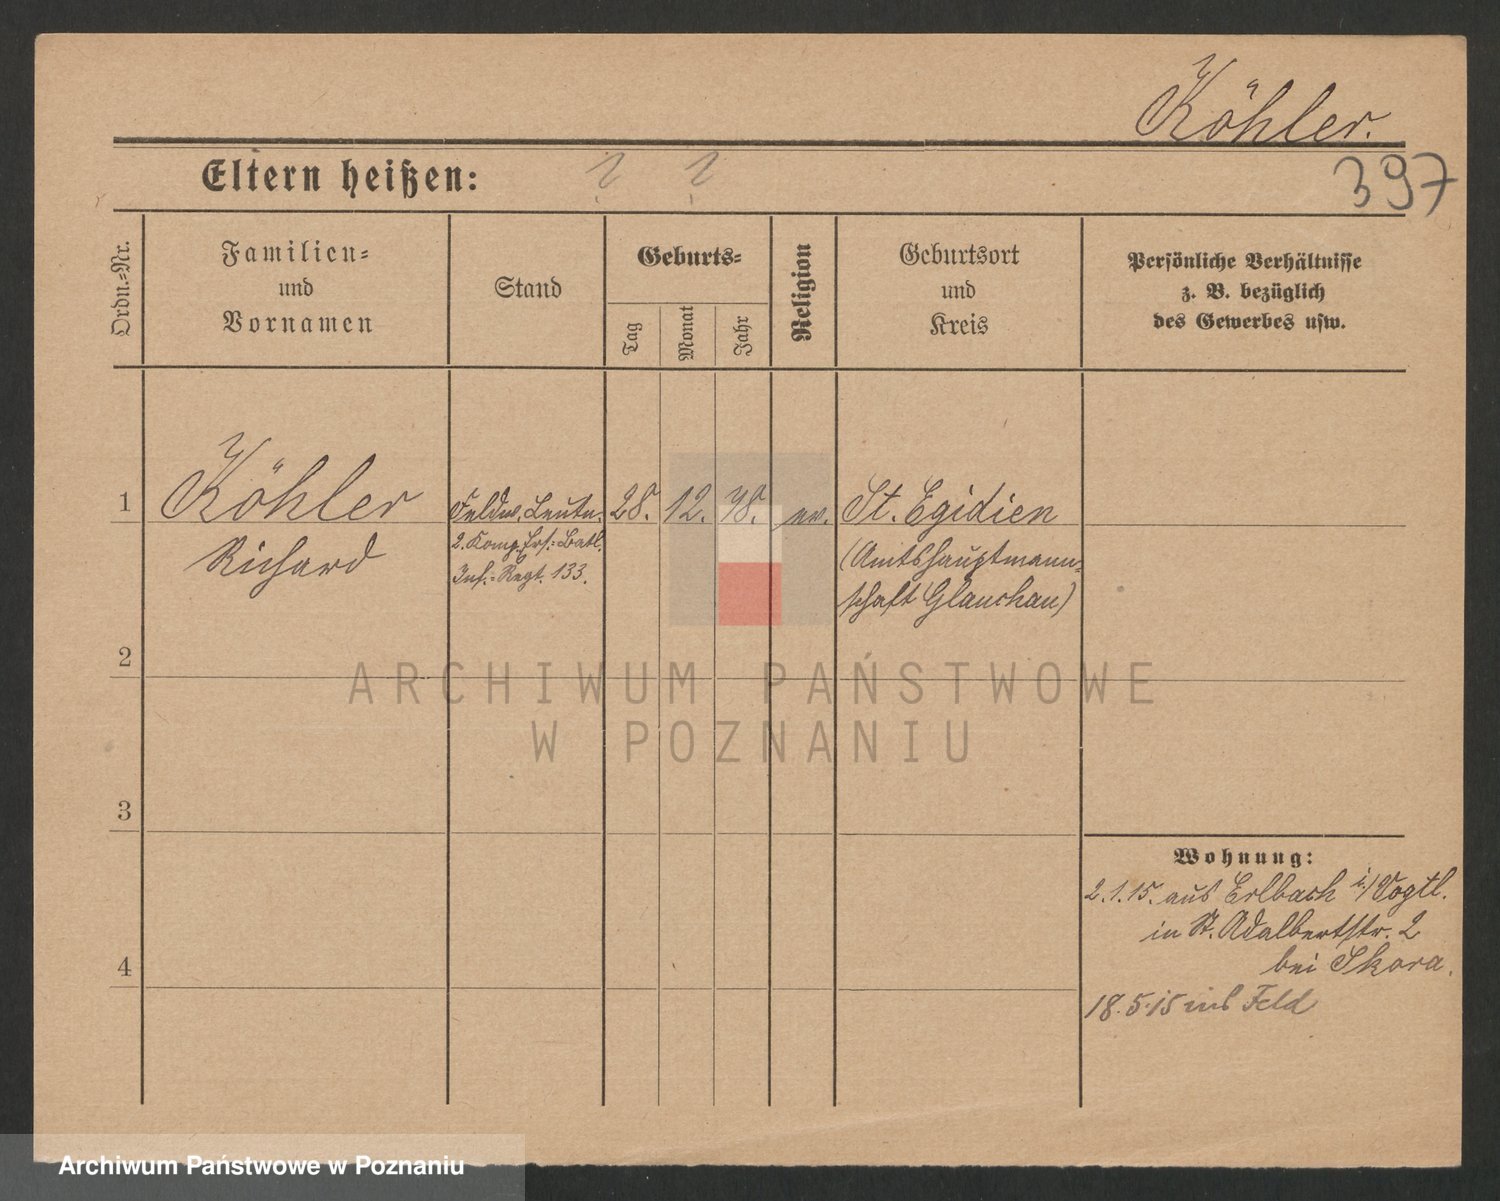 Köhler.
Eltern heißen: ? ?
397
Ordn.-Nr.
Familien-
und
Vornamen
Stand
Geburts-
Tag
Monat
Jahr
Religion
Geburtsort
und
Kreis
Persönliche Verhältnisse
z. B. bezüglich
des Gewerbes usw.
1
Köhler
Richard
Feldw. Leutn.
2. Komp. Ers.-Batl.
Inf.-Regt. 133.
28.
12.
78.
ev.
St. Egidien
(Amtshauptmann-
schaft Glauchau)
2
3
4
Wohnung:
2.1.15. aus Erlbach i./Vogtl.
in St. Adalbertstr. 2
bei Skora.
18.5.15 ins Feld
ARCHIWUM PAŃSTWOWE
W POZNANIU
Archiwum Państwowe w Poznaniu